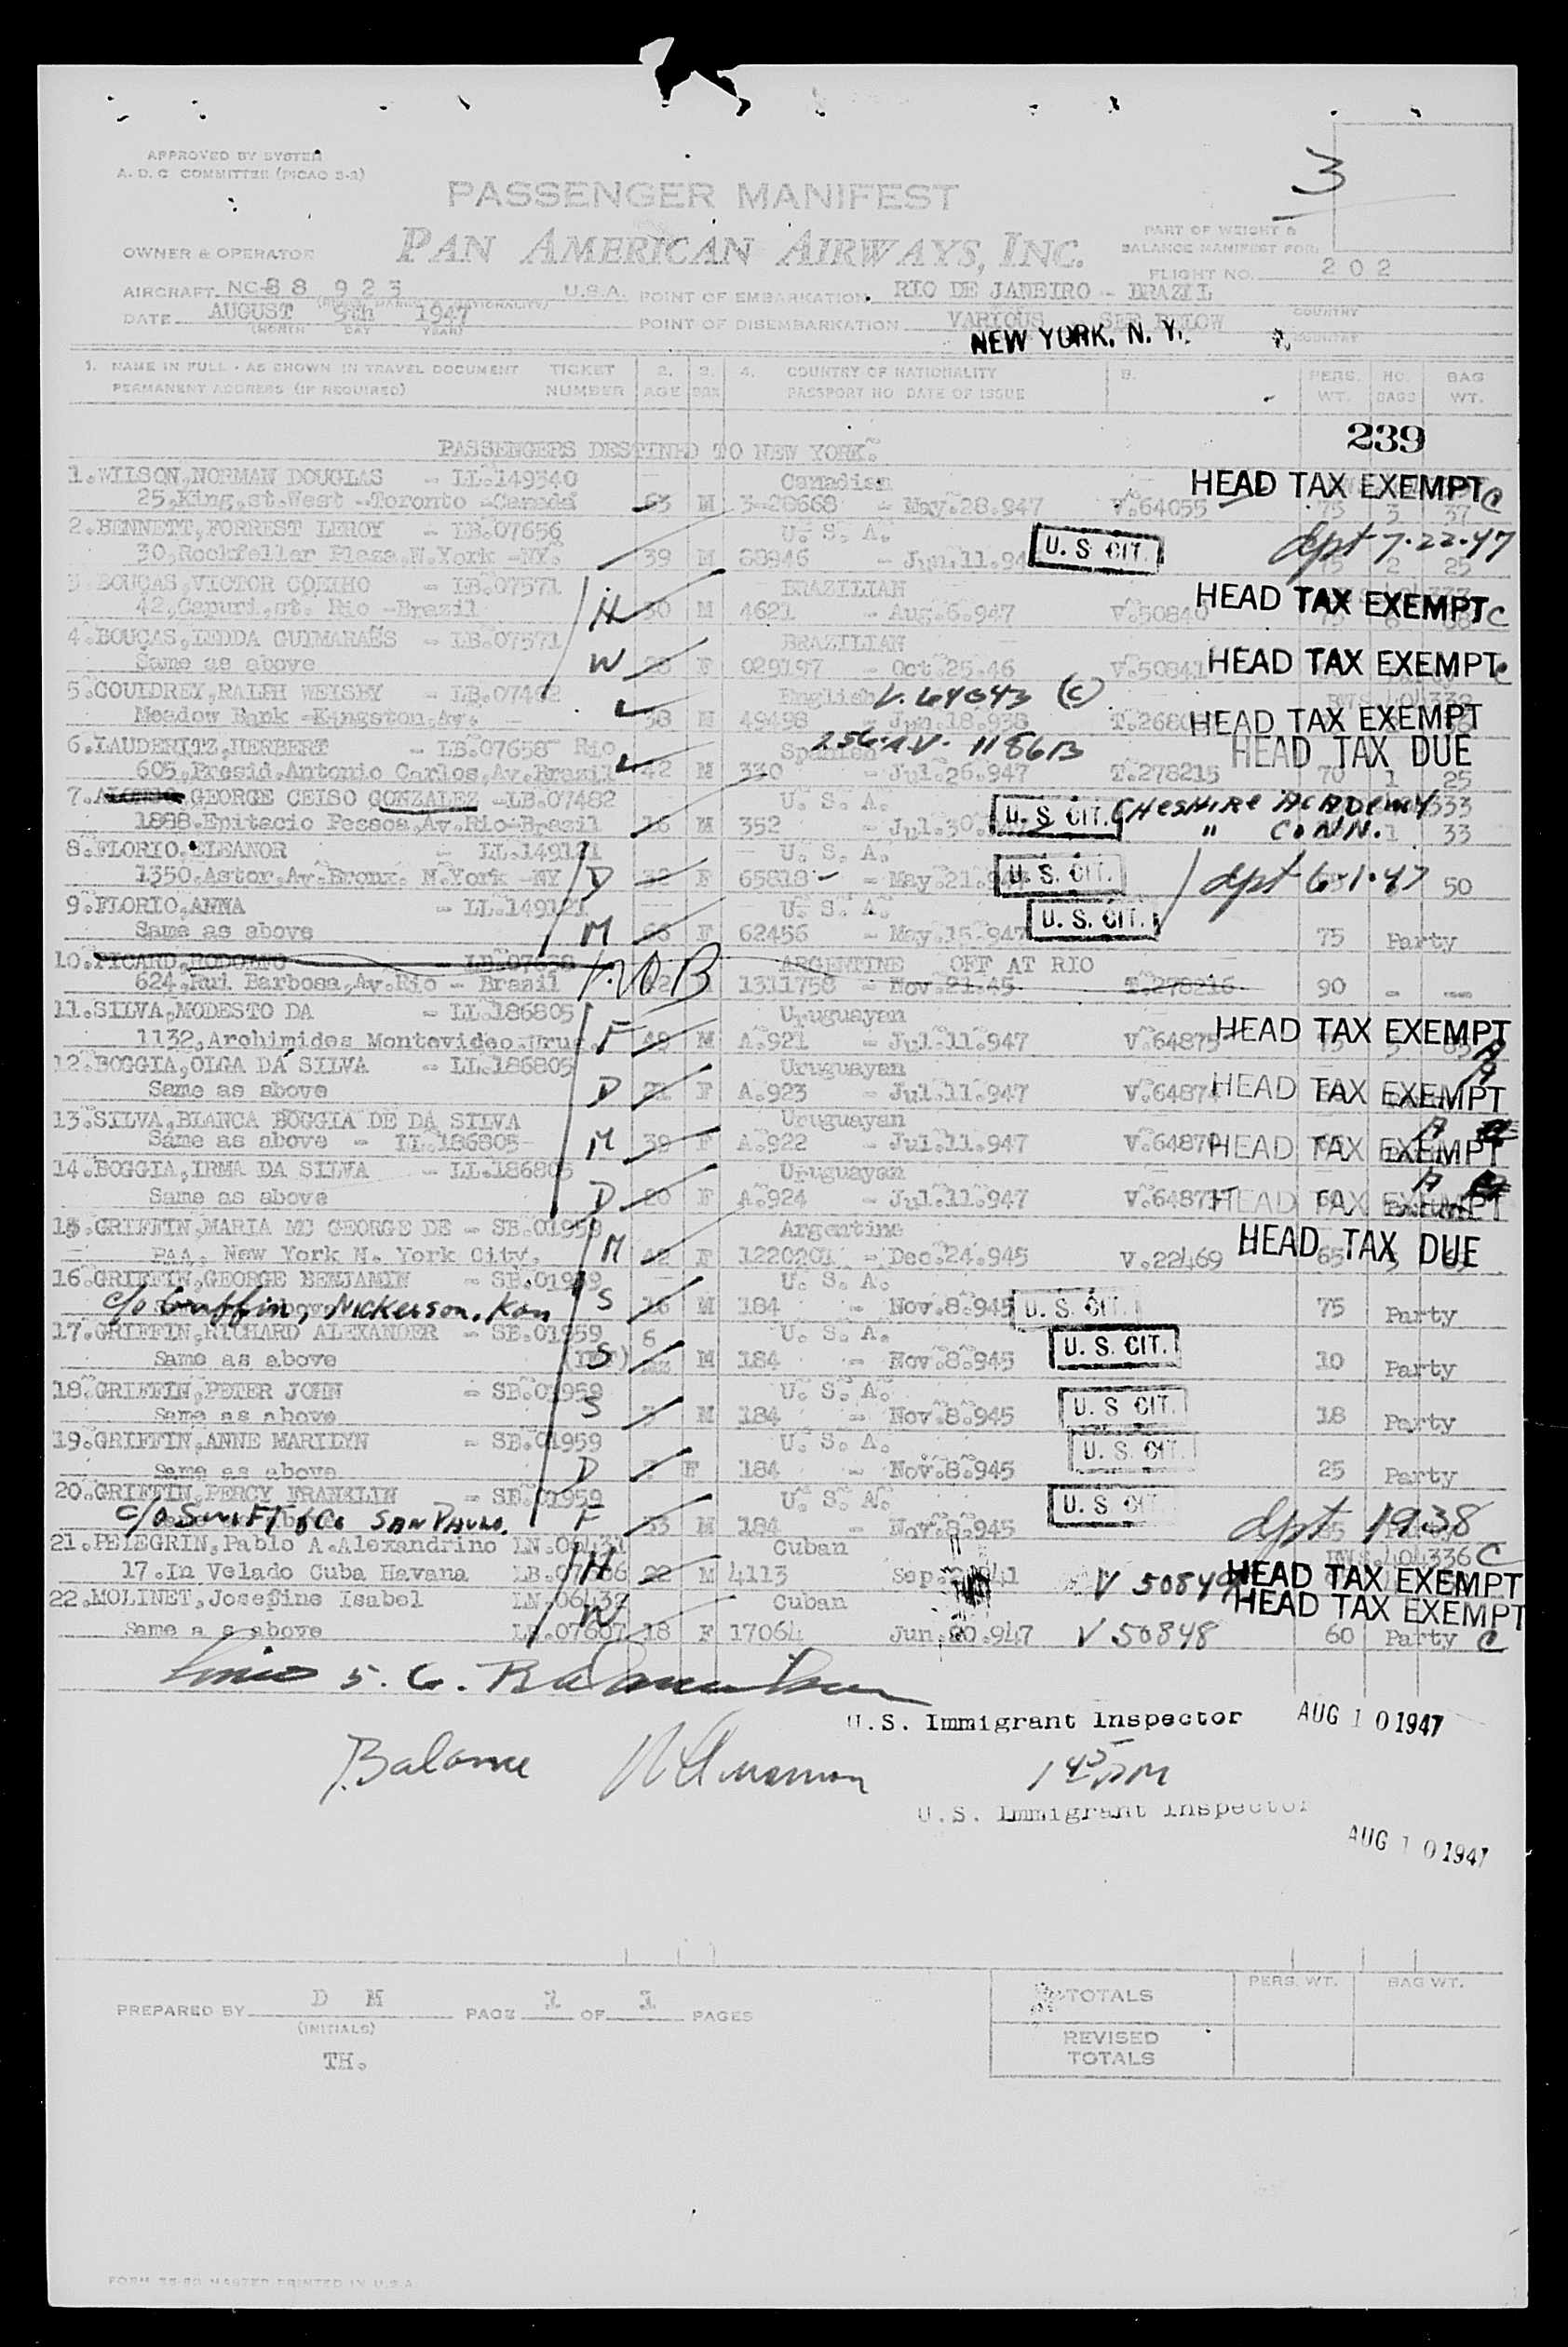 3
APPROVED BY SYSTEM
A. D. C COMMITTEE (PICAO S-3)
PASSENGER MANIFEST
PART OF WEIGHT &
BALANCE MANIFEST FOR:
OWNER & OPERATOR PAN AMERICAN AIRWAYS, INC.
FLIGHT NO. 202
AIRCRAFT NC-88 923 U.S.A. POINT OF EMBARKATION RIO DE JANEIRO - BRAZIL
DATE AUGUST 9th 1947 POINT OF DISEMBARKATION VARIOUS SEE BELOW COUNTRY
(MONTH DAY YEAR)
NEW YORK, N. Y. COUNTRY
1. NAME IN FULL - AS SHOWN IN TRAVEL DOCUMENT TICKET 2. 3. 4. COUNTRY OF NATIONALITY PERS. NO. BAG
PERMANENT ADDRESS (IF REQUIRED) NUMBER AGE SEX PASSPORT NO DATE OF ISSUE WT. BAGS WT.
239
PASSENGERS DESTINED TO NEW YORK.
1.WILSON,NORMAN DOUGLAS - LL.149340 Canadian HEAD TAX EXEMPT C
25,King,st.West -Toronto -Canada 63 M 3-28668 - May.28.947 V.64055 75 3 37
2.BENNETT,FORREST LEROY - LB.07656 U. S. A. U. S. CIT. dpt 7-22-47
30,Rockfeller Plaza,N.York -NY. 39 M 88946 - Jun.11.94 2 25
3.BOUÇAS,VICTOR COELHO - LB.07571 BRAZILIAN HEAD TAX EXEMPT C
42,Capuri,st. Rio -Brazil H 30 M 4621 - Aug.6.947 V.50840
4.BOUÇAS,LEDDA GUIMARAES - LB.07571 BRAZILIAN HEAD TAX EXEMPT
Same as above W F 029197 - Oct.25.46 V.50841
5.COULDREY,RALPH WELSBY - LB.07462 English V. 64043 (C)
Meadow Bank -Kingston,Av. 38 M 49498 - Jun.18.938 HEAD TAX EXEMPT
6.LAUDERITZ,HERBERT - LB.07658 Rio Spanish 1186B HEAD TAX DUE
605,Presid.Antonio Carlos,Av.Brazil 42 M 330 - Jul.26.947 T.278215 70 1 25
7. GEORGE CELSO GONZALEZ -LB.07482 U. S. A. U. S. CIT. CHESHIRE ACADEMY 333
1888.Epitacio Pessoa,Av.Rio-Brazil 16 M 352 - Jul.30. " CONN. 1 33
8.FLORIO,ELEANOR - LL.149121 U. S. A. U. S. CIT.
1350,Astor,Av.Bronx. N.York -NY D 32 F 65818 - May.21.94 dpt 6-1-47 50
9.FLORIO,ANNA - LL.149121 U. S. A. U. S. CIT.
Same as above M F 62456 - May.15.947 75 Party
10.PICARD,RODOLFO - LB.07638 N.O.B ARGENTINE OFF AT RIO
624,Rui Barbosa,Av.Rio - Brazil 1311758 - Nov.21.45 T.278216 90 - -
11.SILVA,MODESTO DA - LL.186805 Uruguayan HEAD TAX EXEMPT
1132,Archimides Montevideo.Urug. F 49 M A.921 - Jul.11.947 V.64875 A
12.BOGGIA,OLGA DA SILVA - LL.186805 Uruguayan A
Same as above D 21 F A.923 - Jul.11.947 V.6487 HEAD TAX EXEMPT
13.SILVA,BLANCA BOGGIA DE DA SILVA Uruguayan A
Same as above - LL.186805 M 39 F A.922 - Jul.11.947 V.6487 HEAD TAX EXEMPT
14.BOGGIA,IRMA DA SILVA - LL.186805 Uruguayan A
Same as above D 20 F A.924 - Jul.11.947 V.6487 HEAD TAX EXEMPT
15.GRIFFIN,MARIA MC GEORGE DE - SB.01959 Argentine HEAD TAX DUE
PAA. New York N. York City. M 42 F 1220201 - Dec.24.945 V.22469 65
16.GRIFFIN,GEORGE BENJAMIN - SB.01959 U. S. A. U. S. CIT.
c/o Griffin, Nickerson, Kan S 16 M 184 - Nov.8.945 75 Party
17.GRIFFIN,RICHARD ALEXANDER - SB.01959 6 U. S. A. U. S. CIT.
Same as above S M 184 - Nov.8.945 10 Party
18.GRIFFIN,PETER JOHN - SB.01959 U. S. A. U. S CIT.
Same as above S M 184 - Nov.8.945 18 Party
19.GRIFFIN,ANNE MARILYN - SB.01959 U. S. A. U. S. CIT.
Same as above D F 184 - Nov.8.945 25 Party
20.GRIFFIN,PERCY FRANKLIN - SB.01959 U. S. A. U. S CIT.
c/o Swift & Co SAN PAULO. F 53 M 184 - Nov.8.945 dpt 1938
21.PELEGRIN,Pablo A.Alexandrino LN.06431 Cuban 404336 C
17.In Velado Cuba Havana H 22 M 4113 Sep. 41 V 50849 HEAD TAX EXEMPT
22.MOLINET,Josefina Isabel LN-06432 Cuban HEAD TAX EXEMPT
Same a s above W LB.07607 18 F 17064 Jun.20.947 V 50848 60 Party C
U.S. Immigrant Inspector AUG 10 1947
Balance 1 45 PM
U.S. Immigrant Inspector
AUG 10 1947
PREPARED BY D M PAGE 1 OF 1 PAGES
(INITIALS)
TH.
PERS. WT. BAG WT.
TOTALS
REVISED
TOTALS